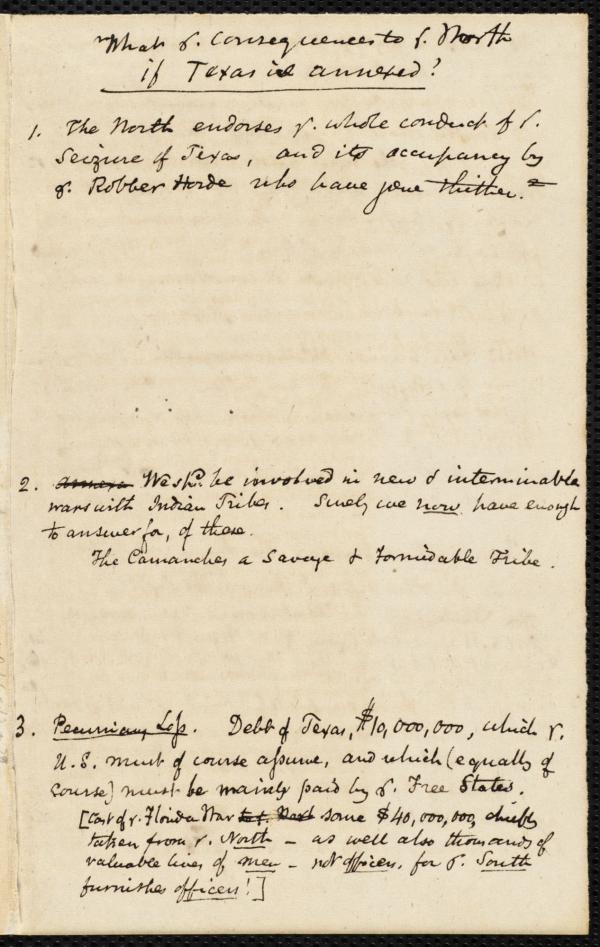 What y. consequences to y. North
if Texas is annexed?
1. The North endorses y. whole conduct of y.
Seizure of Texas, and its occupancy by
y. Robber Horde who have gone thither.
2. annexn We shd. be involved in new & interminable
wars with Indian Tribes. Surely we now have enough
to answer for, of these.
The Camanches a Savage & Formidable Tribe.
3. Pecuniary Loss. Debt of Texas, $10,000,000, which y.
U.S. must of course assume, and which (equally of
course) must be mainly paid by y. Free States.
[Cost of y. Florida War some $40,000,000, chiefly
taken from y. North – as well also thousands of
valuable lives of men – not officers, for y. South
furnishes officers!]